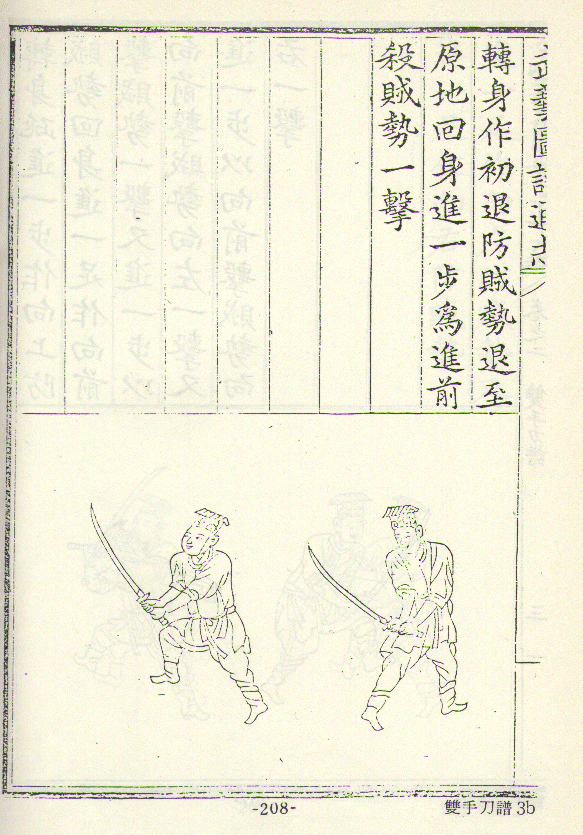 武藝圖譜通志
轉身作初退防賊勢退至
原地回身進一步爲進前
殺賊勢一擊
-208-
雙手刀譜 3b